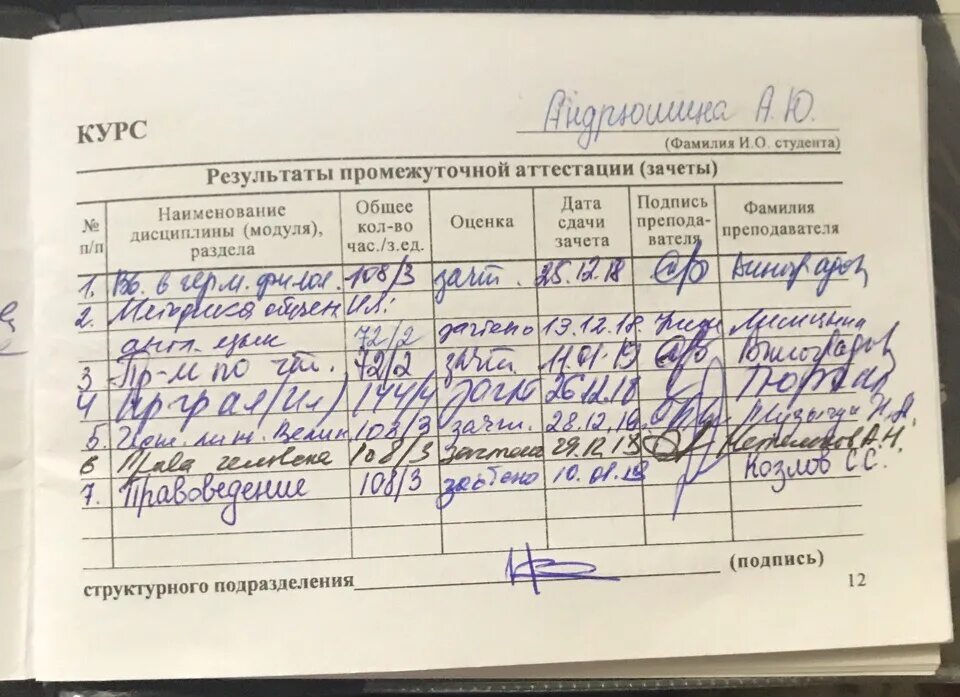 Андрюшина А.Ю.
КУРС
(Фамилия И.О. студента)
Результаты промежуточной аттестации (зачеты)
№ п/п Наименование дисциплины (модуля), раздела Общее кол-во час./з.ед. Оценка Дата сдачи зачета Подпись препода-вателя Фамилия преподавателя
1. Вв. в герм. филол. 108/3 зачт. 25.12.18 Виноградов
2. Методика обучен. ИЯ:
англ. язык 72/2 зачтено 13.12.18 Лисицына
3 Пр-м по чт. 72/2 зачт. 11.01.19 Виноградов
4 144/4 26.12.18
5. Ист. лит. Велик. 108/3 зачт. 28.12.18
6 Права человека 108/3 зачтено 29.12.18 А.Н.
7. Правоведение 108/3 зачтено 10.01.19 Козлов С.С.
структурного подразделения (подпись)
12